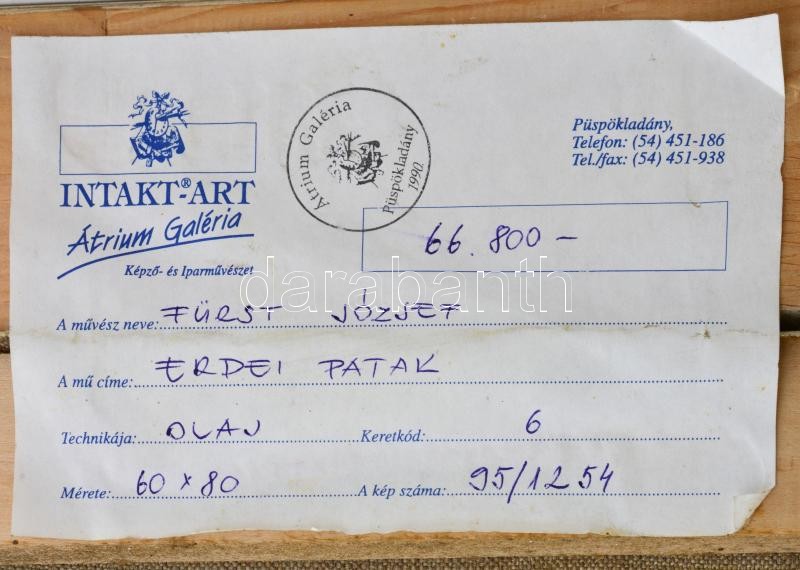 INTAKT-®ART
Átrium Galéria
Képző- és Iparművészet
Átrium Galéria
Püspökladány
1990.
Püspökladány,
Telefon: (54) 451-186
Tel./fax: (54) 451-938
66.800 –
darabanth
A művész neve: FÜRST JÓZSEF
A mű címe: ERDEI PATAK
Technikája: OLAJ Keretkód: 6
Mérete: 60 x 80 A kép száma: 95/1254